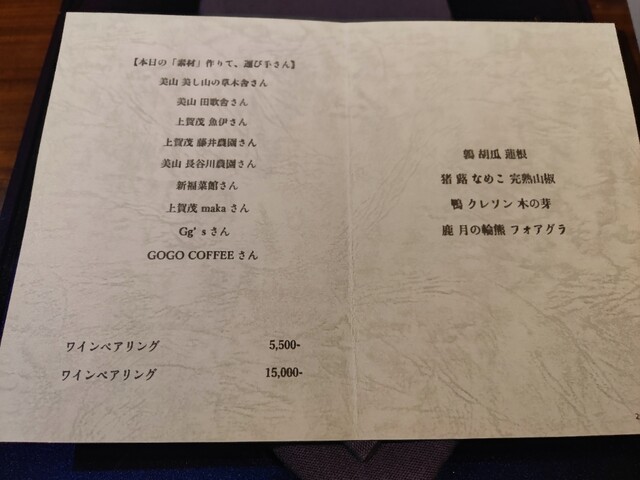 【本日の「素材」作りて、選び手さん】
美山 美し山の草木舎さん
美山 田歌舎さん
上賀茂 魚伊さん
上賀茂 藤井農園さん
美山 長谷川農園さん
新福菜館さん
上賀茂 maka さん
Gg's さん
GOGO COFFEE さん
ワインペアリング 5,500-
ワインペアリング 15,000-
鶉 胡瓜 蓮根
猪 蕗 なめこ 完熟山椒
鴨 クレソン 木の芽
鹿 月の輪熊 フォアグラ
2